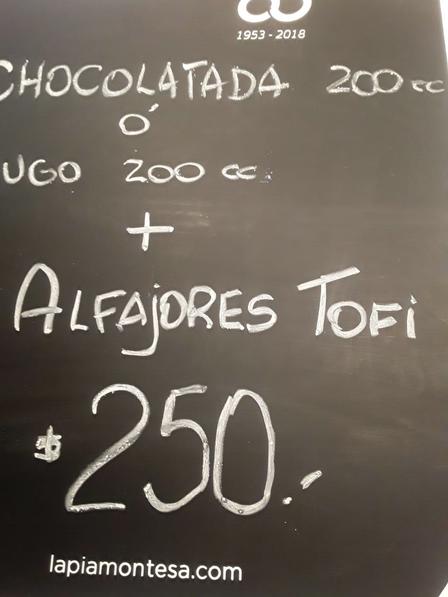 1953 - 2018
CHOCOLATADA 200 cc
Ó
UGO 200 cc.
+
ALFAJORES TOFi
$250.-
lapiamontesa.com